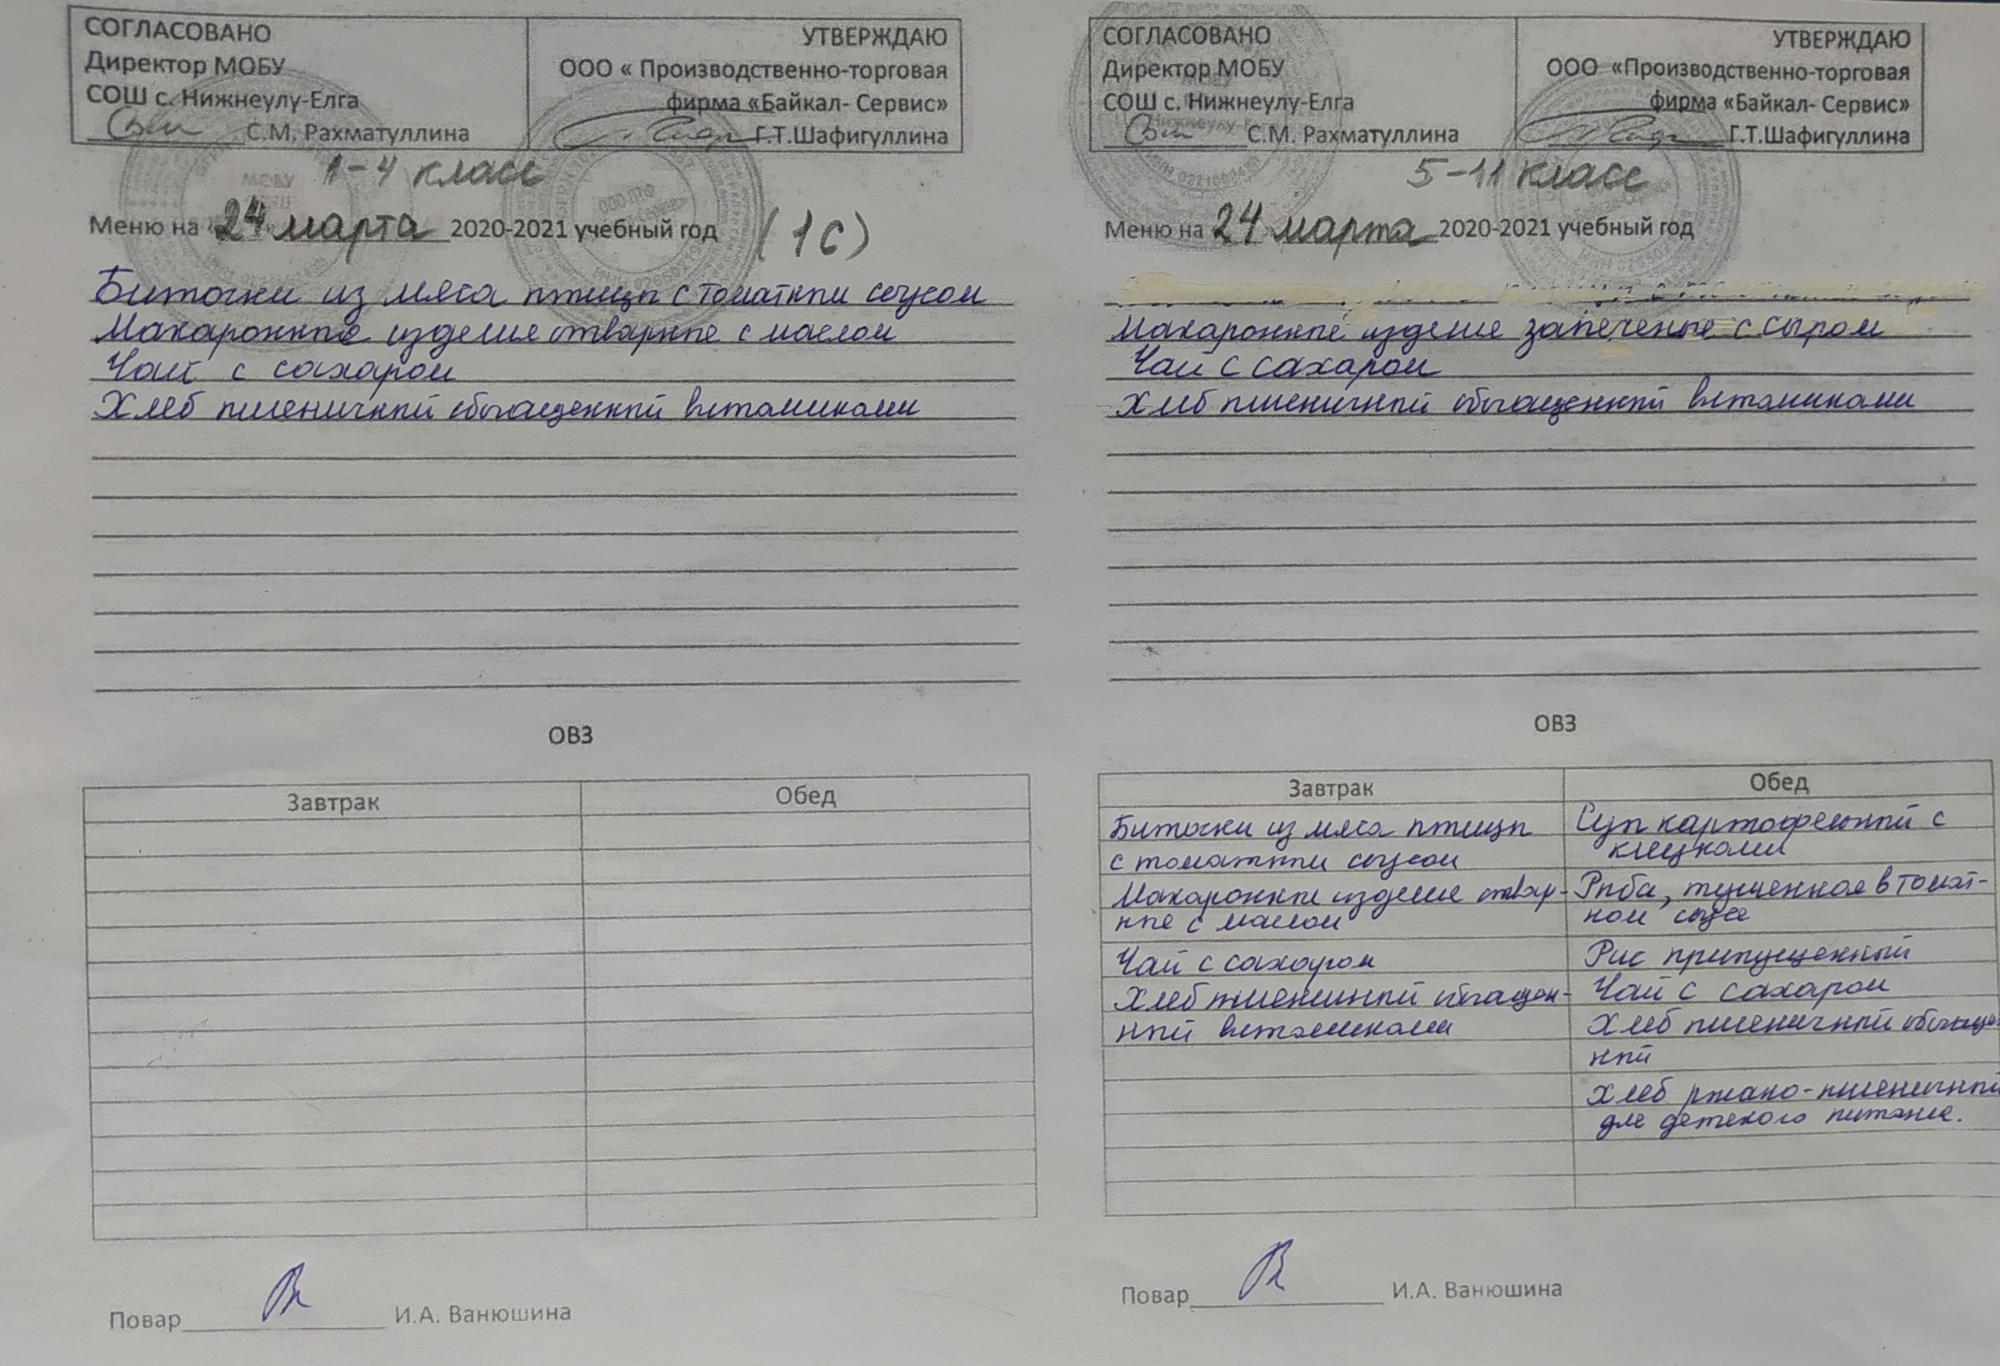 СОГЛАСОВАНО
Директор МОБУ
СОШ с. Нижнеулу-Елга
С.М. Рахматуллина
УТВЕРЖДАЮ
ООО « Производственно-торговая
фирма «Байкал- Сервис»
Г.Т.Шафигуллина
1-4 класс
Меню на 24 марта 2020-2021 учебный год (1с)
Биточки из мяса птицы с томатны соусом
Макаронные изделие отварные с маслом
Чай с сахаром
Хлеб пшеничный обогащенный витаминами
ОВЗ
Завтрак Обед
Повар И.А. Ванюшина
СОГЛАСОВАНО
Директор МОБУ
СОШ с. Нижнеулу-Елга
С.М. Рахматуллина
УТВЕРЖДАЮ
ООО «Производственно-торговая
фирма «Байкал- Сервис»
Г.Т.Шафигуллина
5-11 класс
Меню на 24 марта 2020-2021 учебный год
Макаронные изделие запеченые с сыром
Чай с сахаром
Хлеб пшеничный обогащенный витаминами
ОВЗ
Завтрак
Биточки из мяса птицы
с томатны соусом
Макаронны изделие отвар-
ные с маслом
Чай с сахаром
Хлеб пшеничный обогащен-
ный витаминами
Обед
Суп картофельный с
клецками
Рыба, тушенная в томат-
ном соусе
Рис припущенный
Чай с сахаром
Хлеб пшеничный обогаще-
нный
Хлеб ржано-пшеничный
для детского питание.
Повар И.А. Ванюшина